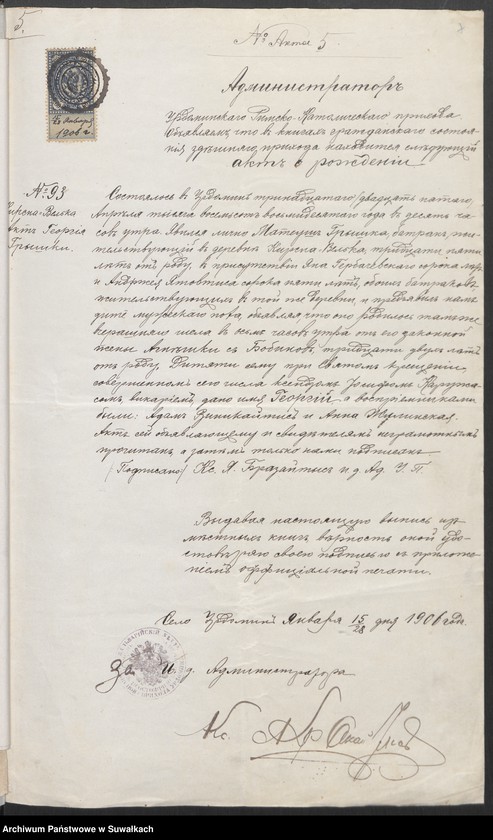 5.
№ Акта 5
15 Января
1906 г
Администраторъ
Римско-Католическаго прихода
объявляетъ, что въ книгахъ гражданскаго состоя-
нія здѣшняго прихода находится слѣдующій
актъ о рожденіи
№ 93
Актъ Георгія
Грышки.
Состоялось въ тринадцатаго/двадцать пятаго
Апрѣля тысяча восемьсотъ восьмидесятаго года въ десять ча-
совъ утра. Явился лично Матеушъ Грышка, батракъ, жи-
тельствующій въ деревнѣ тридцати пяти
лѣтъ отъ роду, въ присутствіи Яна сорока
и Андржея сорока пяти лѣтъ, обоихъ батраковъ
жительствующихъ въ той же деревни, и предъявилъ намъ
дитя мужескаго пола, объявляя что оно родилось тамъ же
вчерашняго числа въ семь часовъ утра отъ его законной
жены Агнѣшки съ тридцати двухъ лѣтъ
отъ роду. Дитяти сему при Святомъ крещеніи,
совершенномъ сего числа ксендзомъ Іосифомъ
викаріемъ, дано имя Георгій а воспріемниками
были: Адамъ и Анна
Актъ сей объявляющему и свидѣтелямъ неграмотнымъ
прочитанъ, а затѣмъ только нами подписанъ
/Подписано/ Кс. А. Бразайтысъ и д Ад. У. П.
Выдавая настоящую выпись изъ
мѣстныхъ книгъ вѣрность оной удо-
стовѣряю своею подписью съ приложе-
ніемъ оффиціальной печати.
Село Января 15/28 дня 1906 года.
За И. д. Администратора
Кс.
Archiwum Państwowe w Suwałkach